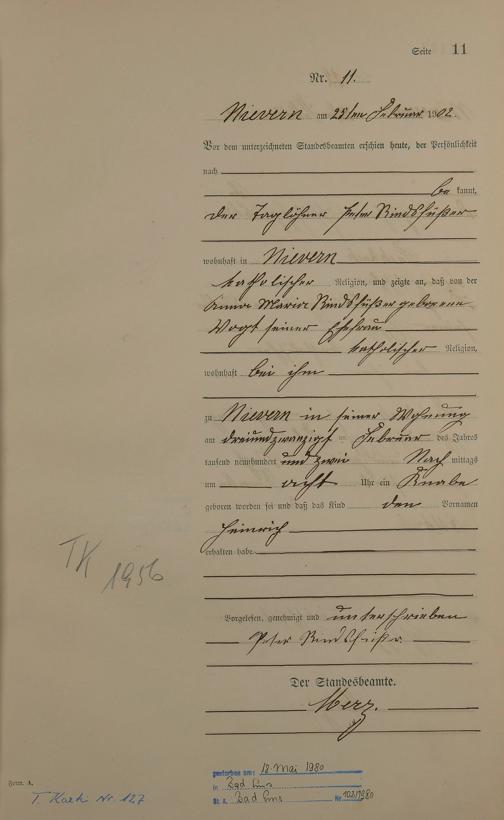 Seite 11
Nr. 11.
Nievern am 25ten Februar 1902.
Vor dem unterzeichneten Standesbeamten erschien heute, der Persönlichkeit
nach
be kannt,
der Taglöhner Peter Rindsfüßer
wohnhaft in Nievern
katholischer Religion, und zeigte an, daß von der
Anna Maria Rindsfüßer geborene
Vogt seiner Ehefrau
katholischer Religion,
wohnhaft bei ihm
zu Nievern in seiner Wohnung
am dreiundzwanzigst Februar des Jahres
tausend neunhundert und zwei Nach mittags
um acht Uhr ein Knabe
geboren worden sei und daß das Kind den Vornamen
Heinrich
erhalten habe.
Vorgelesen, genehmigt und unterschrieben
Peter Rindsfüßer
Der Standesbeamte.
Merz.
TK
1956
Form. A.
T. Kath Nr. 127
gestorben am: 18. Mai 1980
in Bad Ems
St. A. Bad Ems Nr 102/1980